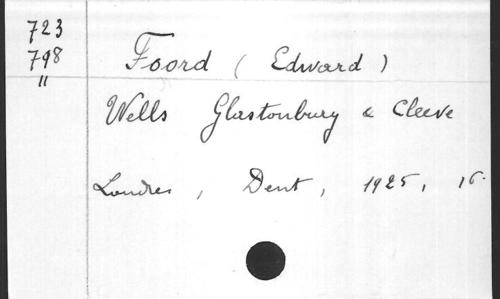 723
798
"
Foord ( Edward )
Wells Glastonbury & Cleeve
Londres, Dent, 1925, 16.